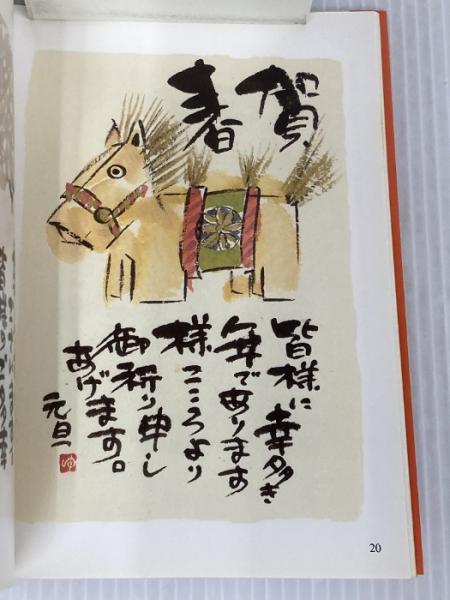 賀春
皆様に幸多き
年であります
様こころより
御祈り申し
あげます。
元旦
20